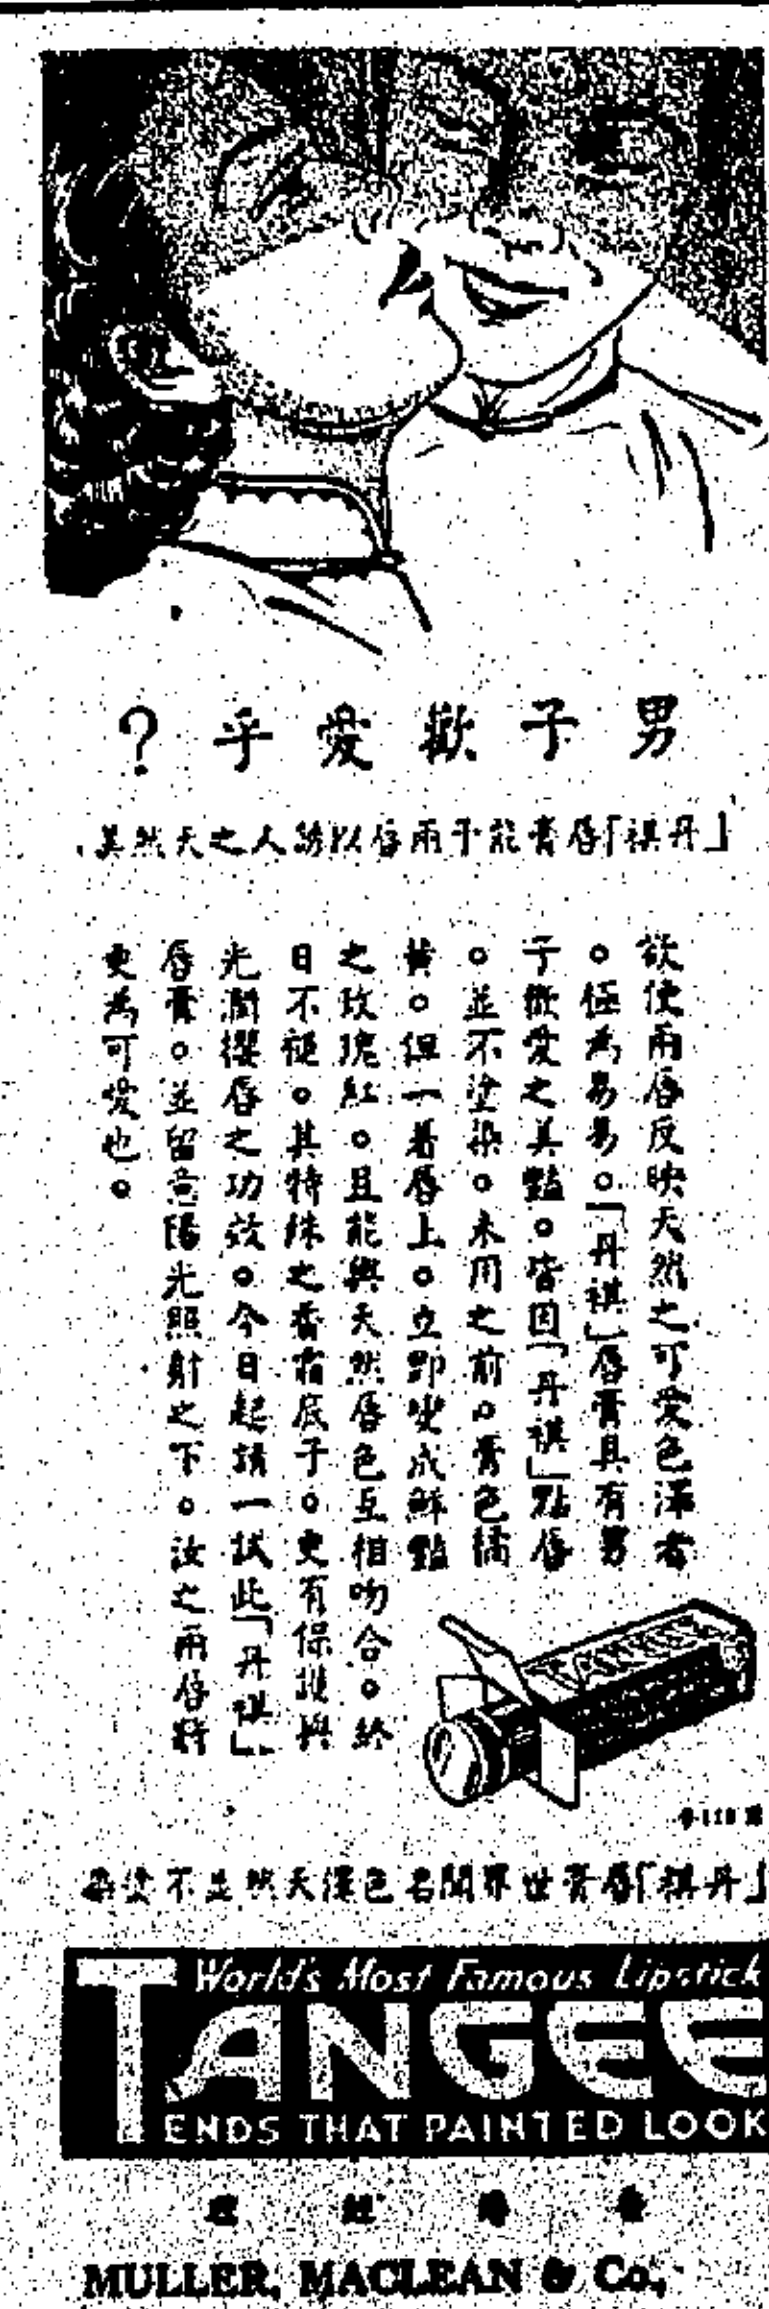 男子歡愛乎?
「丹祺」唇膏能予兩唇以誘人之天然美
欲使兩唇反映天然之可愛色澤者
。極為易易。「丹祺」唇膏具有男
子歡愛之美豔。皆因「丹祺」點唇
。並不塗染。未用之前。膏色橘
黃。但一着唇上。立即變成鮮豔
之玫瑰紅。且能與天然唇色互相吻合。終
日不褪。其特殊之香霜底子。更有保護與
光潤櫻唇之功效。今日起請一試此「丹祺」
唇膏。並留意陽光照射之下。汝之兩唇將
更為可愛也。
TANGEE
「丹祺」唇膏世界聞名色澤天然並不塗染
World's Most Famous Lipstick
TANGEE
ENDS THAT PAINTED LOOK
經理
MULLER, MACLEAN & Co.,